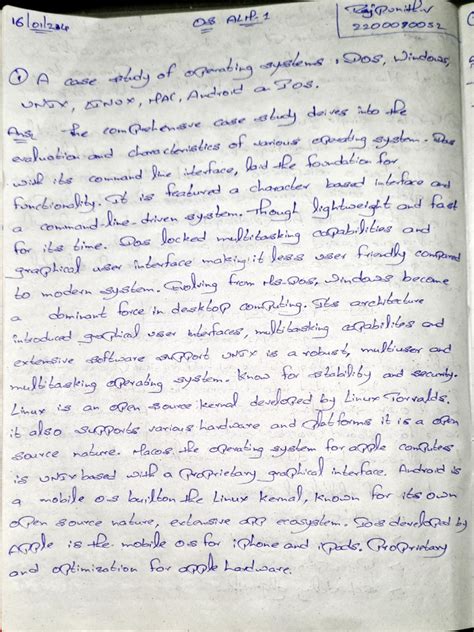 16/01/24 OS ALM-1 Raj Punith.V
2200090052
① A case study of operating systems, DOS, Windows,
UNIX, LINUX, MAC, Android & IOS.
Ans: The comprehensive case study delves into the
evaluation and characteristics of various operating system. Dos
with its command line interface, laid the foundation for
functionality. It is featured a character based interface and
a command-line-driven system. Though lightweight and fast
for its time. Dos locked multitasking capabilities and
graphical user interface making it less user friendly compared
to modern system. Evolving from Ms-Dos, Windows become
a dominant force in desktop computing. Its architecture
introduced graphical user interfaces, multitasking capabilites and
extensive software support UNIX is a robust, multiuser and
multitasking operating system. Know for stability and security.
Linux is an open source kernel developed by Linux Torvalds.
it also supports various hardware and platforms it is a open
source nature. Macos the operating system for apple computers
is UNIX based with a proprietary graphical interface. Android is
a mobile os builton the Linux kernel, known for its own
open source nature, extensive app ecosystem. Ios developed by
Apple is the mobile os for iphone and ipads. Proprietary
and optimization for apple hardware.